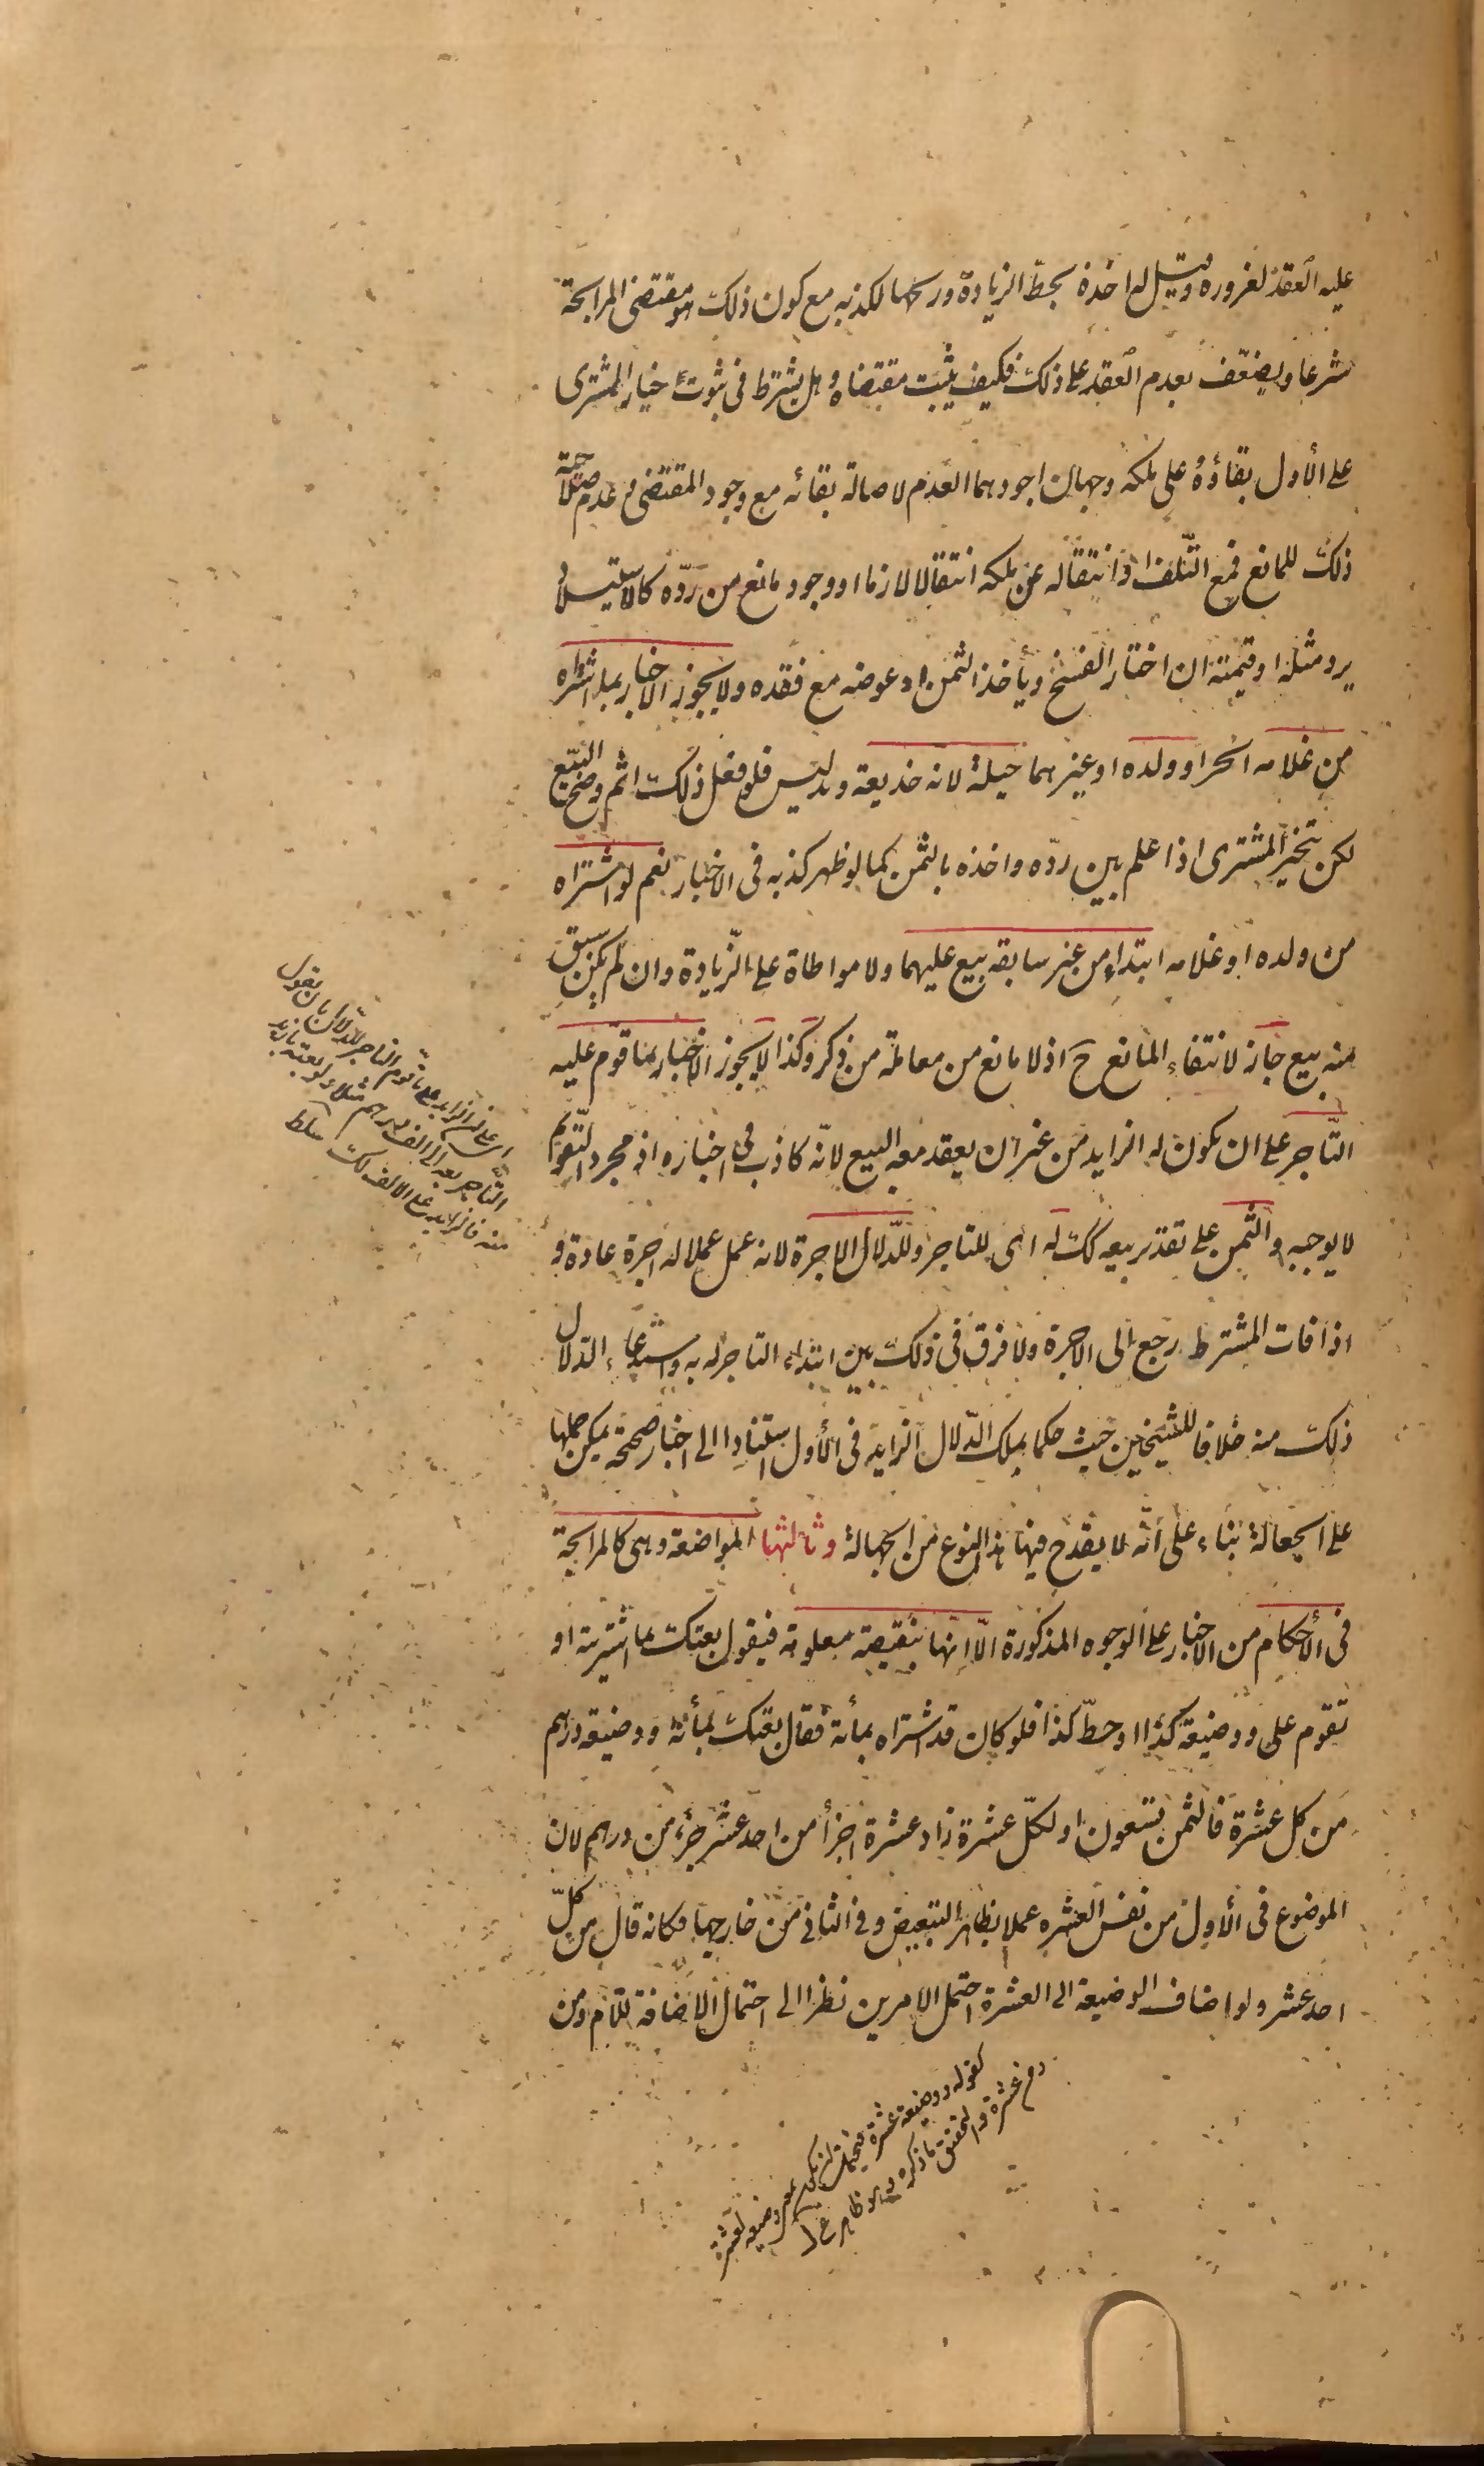 عليه العقد لغروره وقيل له اخذه بحطّ الزيادة وربحها لكذبه مع كون ذلك هو مقتضى المرابحة
شرعا ويضعّف بعدم العقد على ذلك فكيف يثبت مقتضاه وهل يشترط فى ثبوت خيار المشترى
على الأول بقاؤه على ملكه وجهان اجودهما العدم لاصالة بقائه مع وجود المقتضى وعدم صلاحية
ذلك للمانع فمع التّلف او انتقاله عن ملكه انتقالا لازما او وجود مانع من ردّه كالاستيلاد
يرد مثله او قيمته ان اختار الفسخ ويأخذ الثمن او عوضه مع فقده ولا يجوز الاخبار بما اشتراه
من غلامه الحر او ولده او غيرهما حيلة لانه خديعة وتدليس فلو فعل ذلك اثم وصح البيع
لكن يتخير المشترى اذا علم بين ردّه واخذه بالثمن كما لو ظهر كذبه فى الاخبار نعم لو اشتراه
من ولده او غلامه ابتداء من غير سابقه بيع عليهما ولا مواطاة على الزّيادة وان لم يكن سبق
منه بيع جاز لانتفاء المانع ح اذ لا مانع من معاملة من ذكر وكذا لا يجوز الاخبار بما قوم عليه
التّاجر على ان يكون له الزايد من غير ان يعقد معه البيع لانّه كاذب فى اخباره اذ مجرد التّقويم
لا يوجبه والثمن على تقدير بيعه كك له اى للتاجر وللدّلال الاجرة لانه عمل عملا له اجرة عادة و
اذا فات المشترط رجع الى الاجرة ولا فرق فى ذلك بين ابتداء التاجر له به واستدعاء الدّلال
ذلك منه خلافا للشيخين حيث حكما بملك الدّلال الزايد فى الأول استنادا الى اخبار صحيحة يمكن حملها
على الجعالة بناء على انّه لا يقدح فيها هذا النوع من الجهالة وثالثها المواضعة وهى كالمرابحة
فى الأحكام من الاخبار على الوجوه المذكورة الّا انها بنقيصة معلومة فيقول بعتك بما اشتريته او
تقوم على ووضيعة كذا او حطّ كذا فلو كان قد اشتراه بمأة فقال بعتك بمأة ووضيعة درهم
من كل عشرة فالثمن تسعون او لكلّ عشرة زاد عشرة اجزأ من احد عشر جزء من درهم لان
الموضوع فى الأول من نفس العشره عملا بظاهر التبعيض وفى الثانى من خارجها فكانه قال من كلّ
احد عشر ولو اضاف الوضيعة الى العشرة احتمل الامرين نظرا الى احتمال الاضافة للّام ومن
اى على ان الزايد على ما قوم التاجر للدّلال بان يقول
التّاجر بعه الى الف درهم مثلا ولو بعته بازيد
منه فالزايد على الالف لك سلط
كقوله ووضيعة عشرة